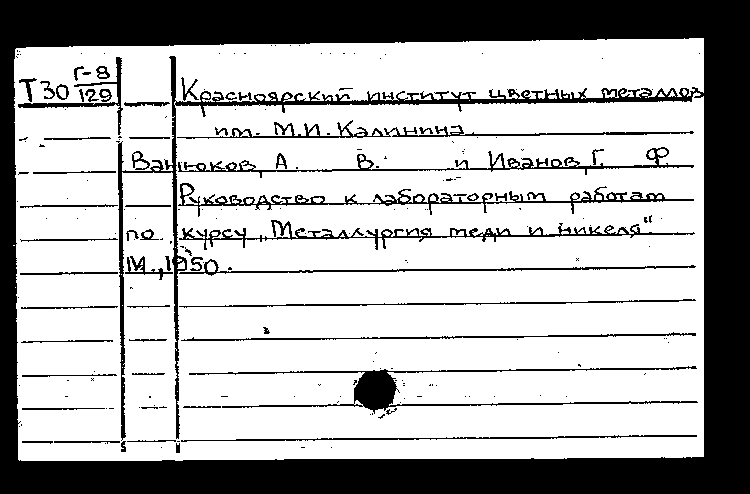 Т30 Г-8/129 Красноярский институт цветных металлов
им. М.И. Калинина
Ванюков, А. В. и Иванов, Г. Ф.
Руководство к лабораторным работам
по курсу „Металлургия меди и никеля“
М., 1950.